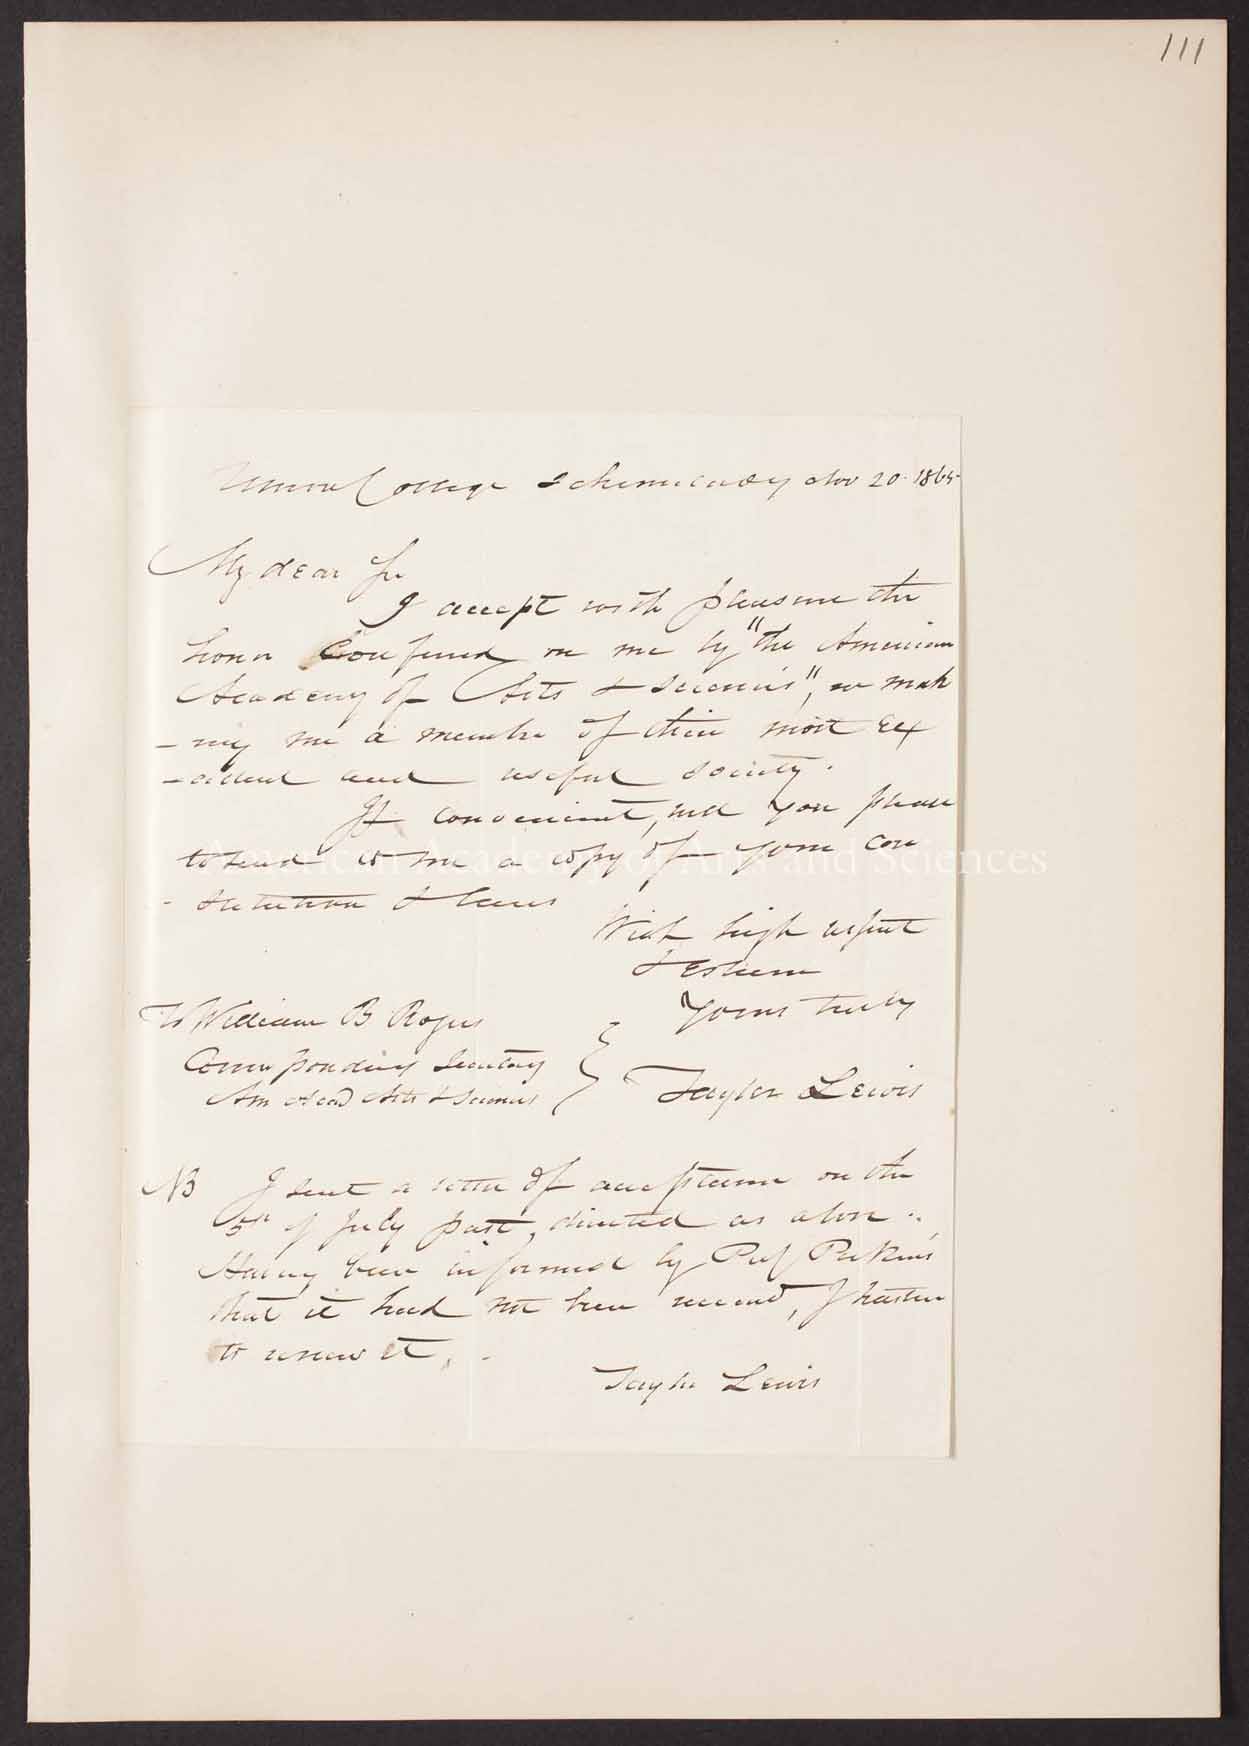 111
Union College Schenectady Nov 20. 1865
My dear Sir
I accept with pleasure the
honor conferred on me by "the American
Academy of Arts & Sciences", in mak
- ing me a member of their most ex
- cellent and useful society.
If convenient, will you please
to send to me a copy of your con
- stitution & laws
With high respect
& esteem
Yours truly
To William B Rogers
Corresponding Secretary
Am Acad Arts & Sciences
Taylor Lewis
NB I sent a letter of acceptance on the
5th of July past, directed as above.
Having been informed by Prof Perkins
that it had not been received, I hasten
to renew it.
Taylor Lewis
American Academy of Arts and Sciences